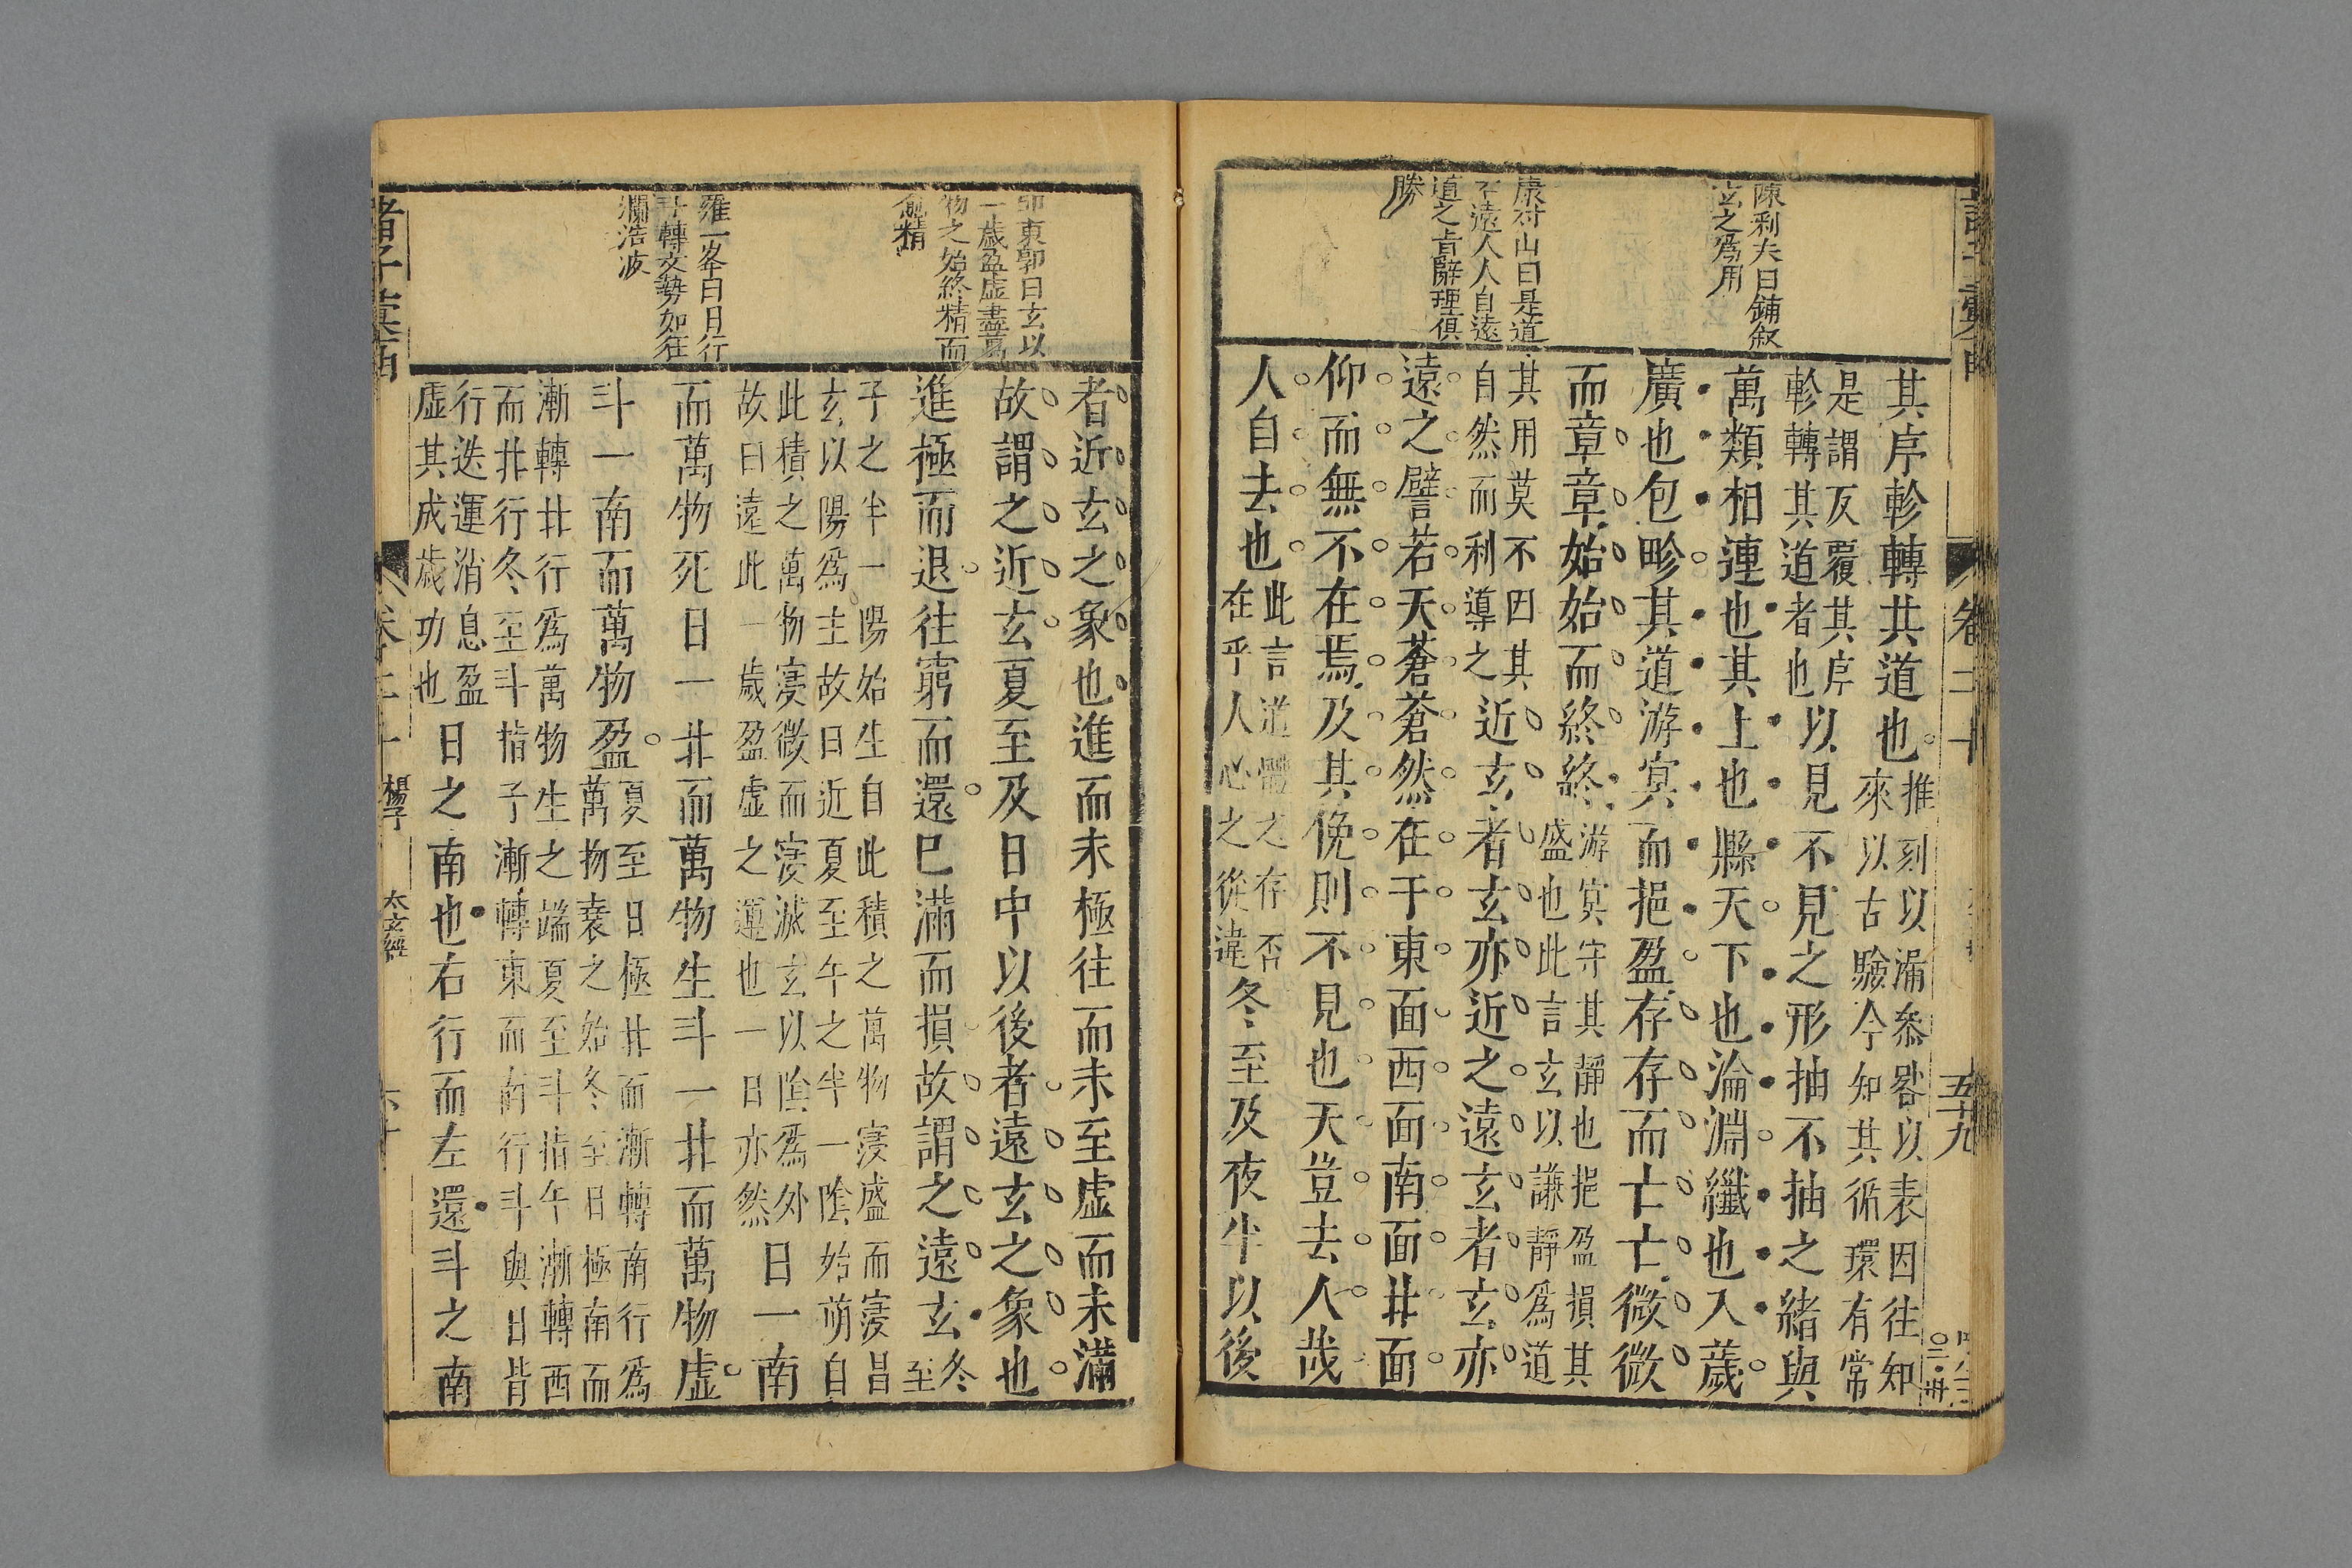 陳利夫曰鋪叙
玄之爲用
康對山曰是道
不遠人人自遠
道之肯辭理俱
勝
其序軫轉其道也
推刻以漏叅晷以表因往知
來以古驗今知其循環有常
是謂反覆其序
軫轉其道者也
以見不見之形抽不抽之緒與
萬類相連也其上也縣天下也淪淵纖也入薉
廣也包畛其道游㝠而挹盈存存而亡亡微微
而章章始始而終終
游㝠守其靜也挹盈損其
盛也此言玄以謙靜爲道
其用莫不因其
自然而利導之
近玄者玄亦近之遠玄者玄亦
遠之譬若天蒼蒼然在于東面西面南面北面
仰而無不在焉及其俛則不見也天豈去人哉
人自去也
此言道體之存否
在乎人心之從違
冬至及夜半以後
卷二十
五十九
東郭曰玄以
一歲盈虛盡萬
物之始終精而
愈精
羅一峯曰日行
斗轉文勢如狂
瀾浩波
者近玄之象也進而未極往而未至虛而未滿
故謂之近玄夏至及日中以後者遠玄之象也
進極而退往窮而還已滿而損故謂之遠玄
冬
至
子之半一陽始生自此積之萬物寖盛而寖昌
玄以陽爲主故曰近夏至午之半一陰始萌自
此積之萬物寖微而寖滅玄以陰爲外
故曰遠此一歲盈虛之運也一日亦然
日一南
而萬物死日一北而萬物生斗一北而萬物虛
斗一南而萬物盈
夏至日極北而漸轉南行爲
萬物衰之始冬至日極南而
漸轉北行爲萬物生之端夏至斗指午漸轉西
而北行冬至斗指子漸轉東而南行斗與日皆
行迭運消息盈
虛其成歲功也
日之南也右行而左還斗之南
諸子彙函
卷二十
楊子
太玄經
六十